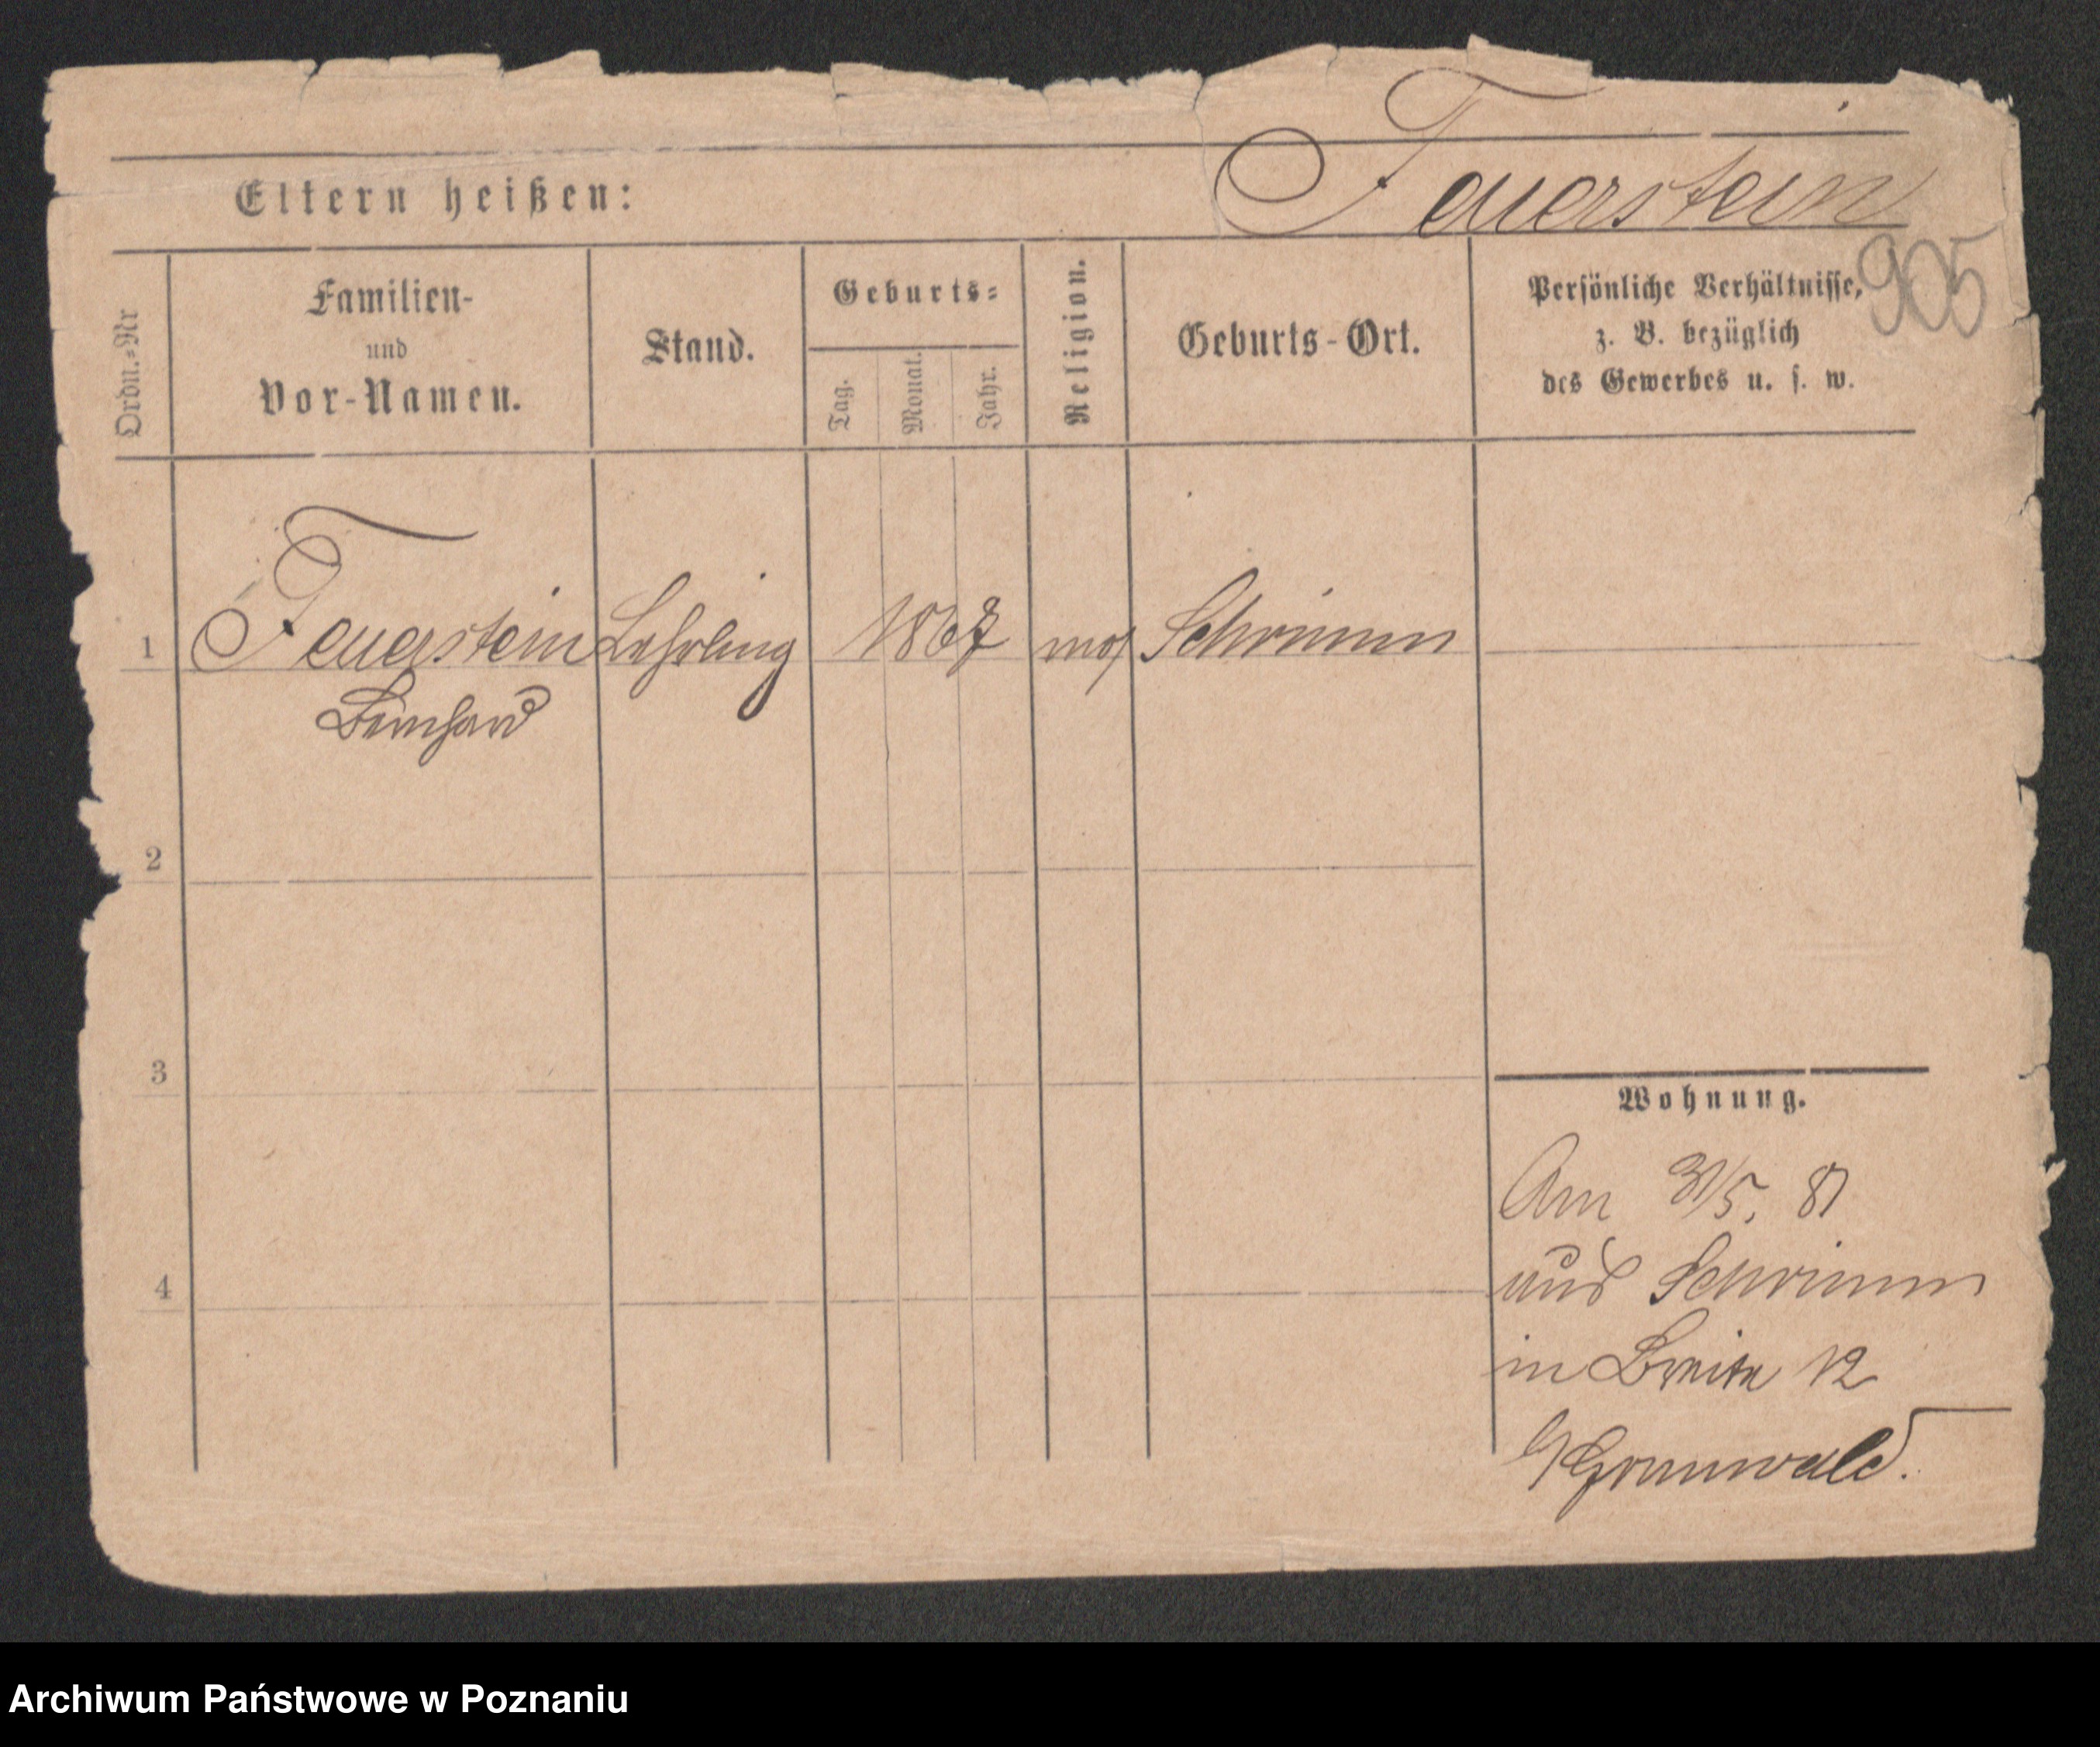 Feuerstein
Eltern heißen:
905
Ordn.=Nr
Familien-
und
Vor-Namen.
Stand.
Geburts=
Tag.
Monat.
Jahr.
Religion.
Geburts-Ort.
Persönliche Verhältnisse,
z. B. bezüglich
des Gewerbes u. s. w.
1 Feuerstein Lehrling 1867 mos Schrimm
Bernhard
2
3
4
Wohnung.
Am 31/5. 81
aus Schrimm
in Breite 12
Grunwald.
Archiwum Państwowe w Poznaniu